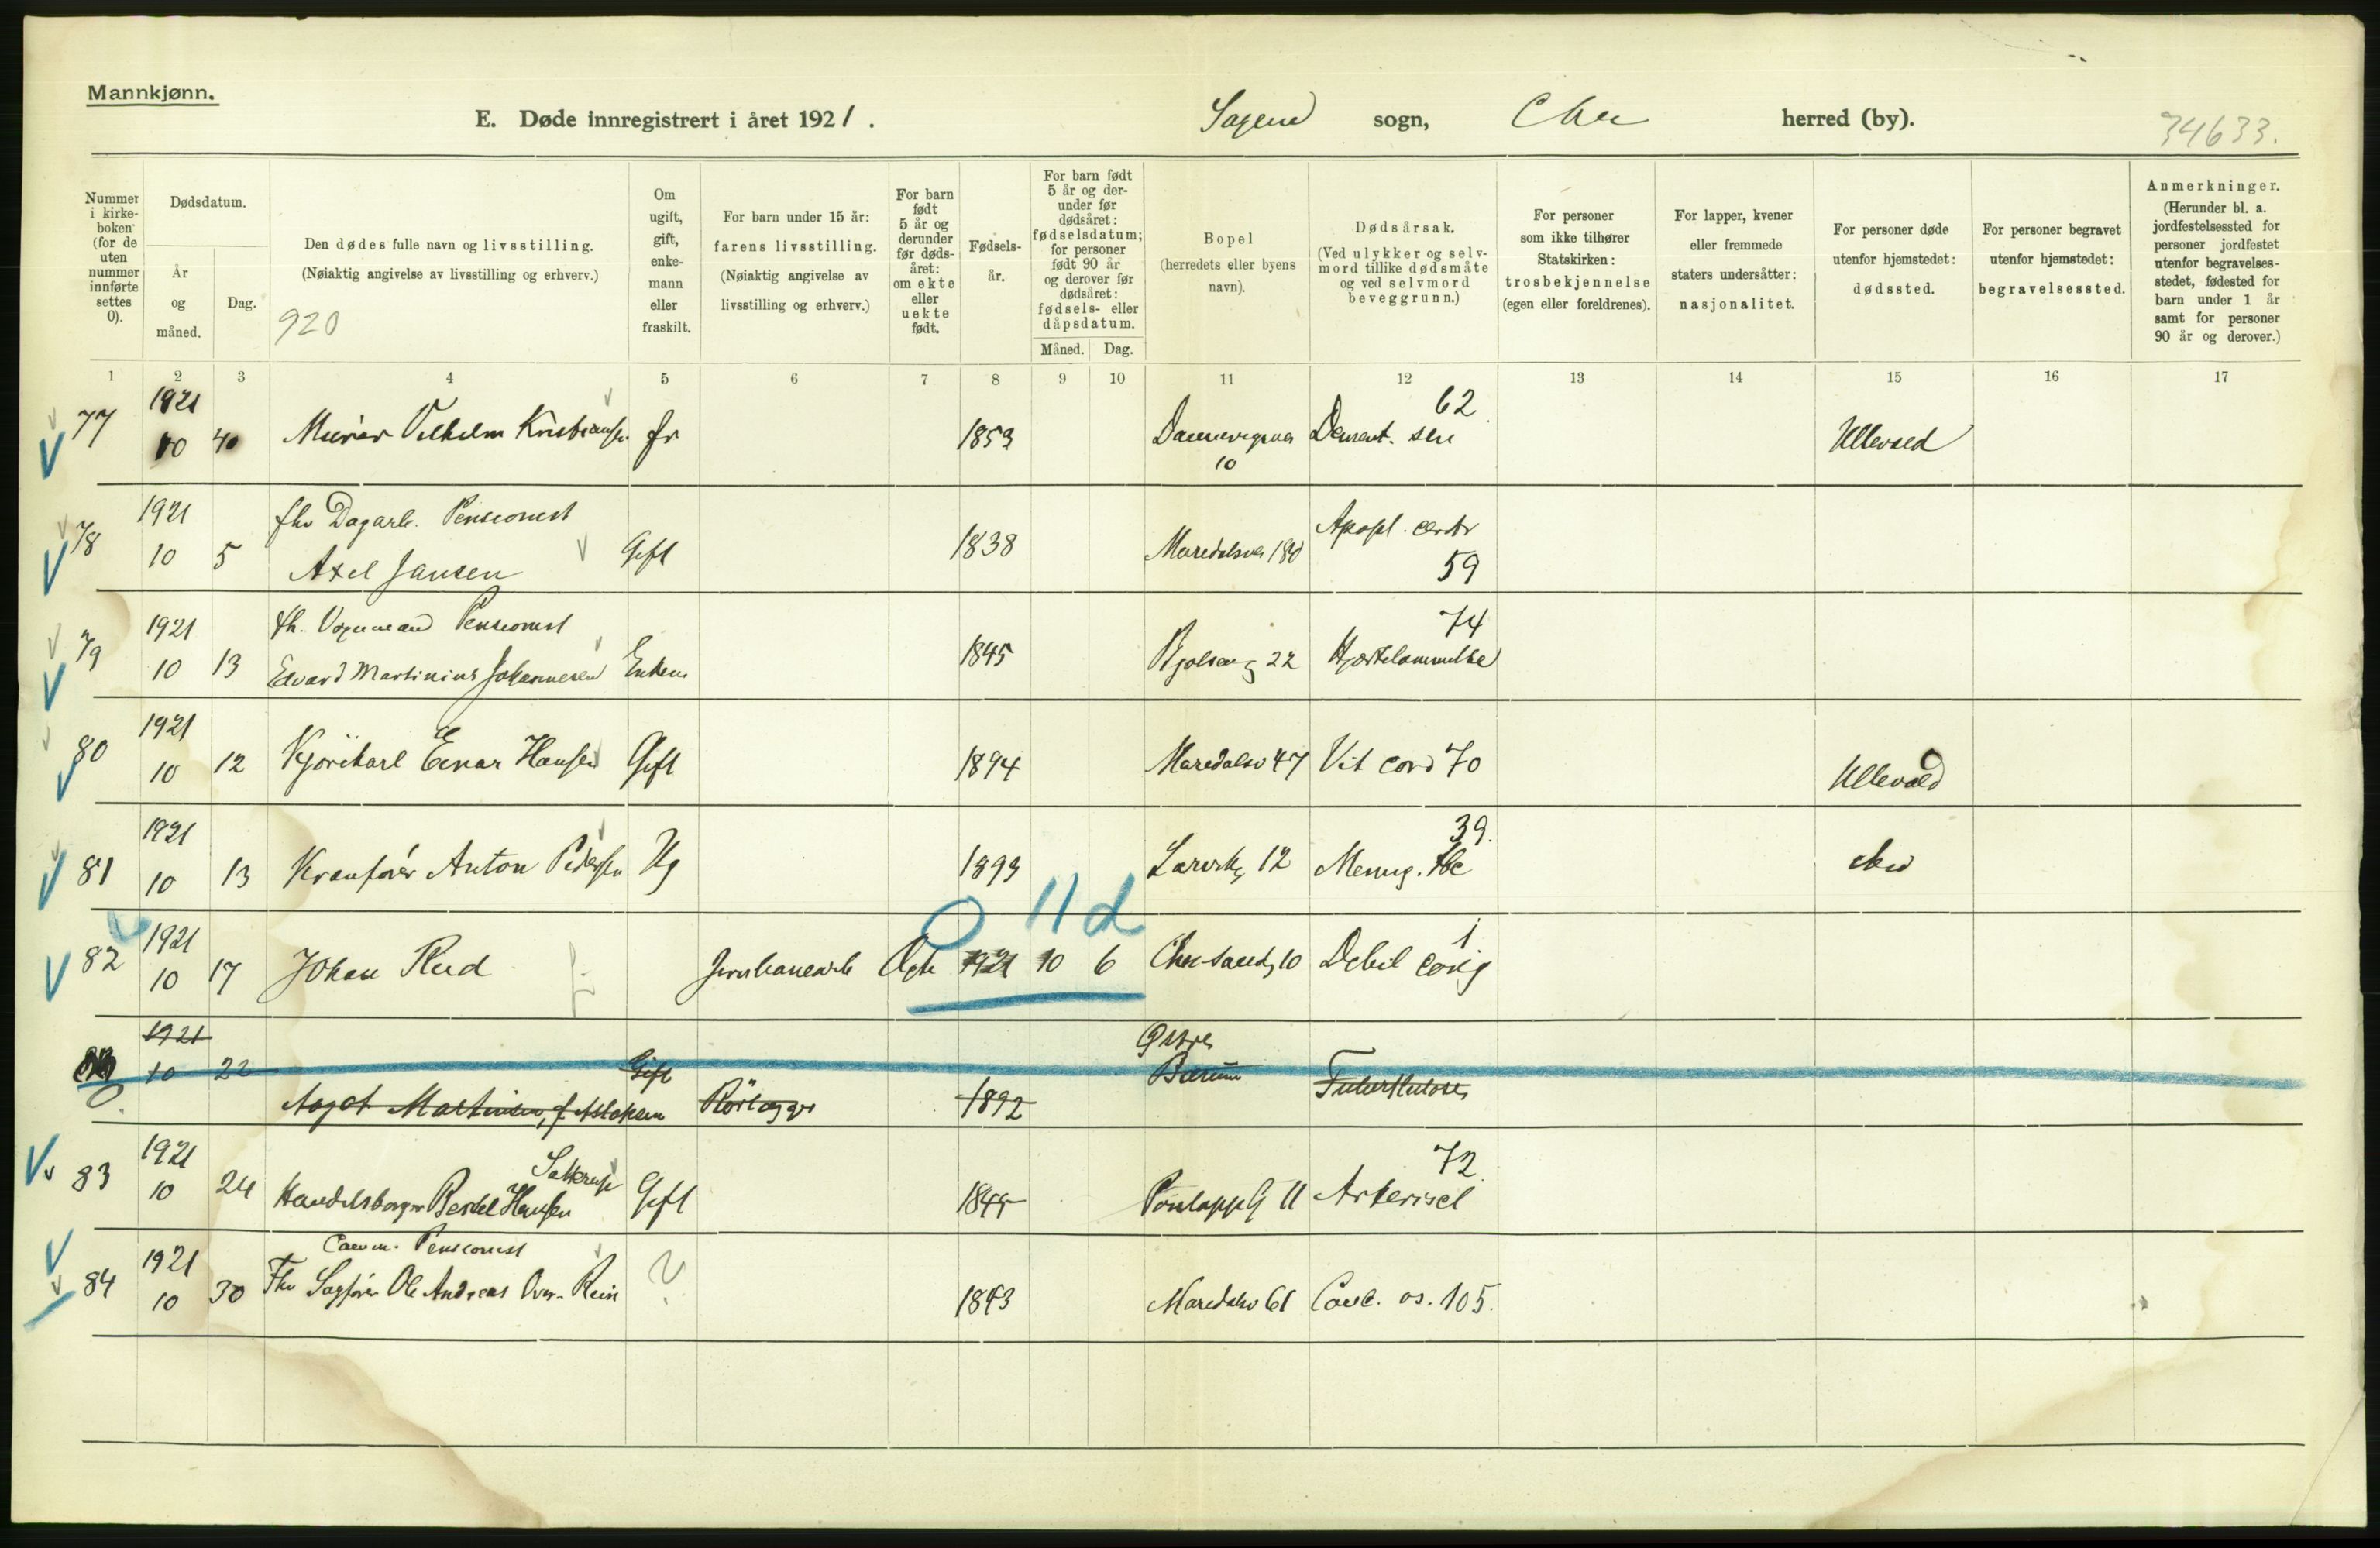 Mannkjønn.
E. Døde innregistrert i året 1921.
Sagene sogn, Chra herred (by).
34633.
Nummer i kirkeboken (for de uten nummer innførte settes 0).
Dødsdatum.
År og måned.
Dag.
Den dødes fulle navn og livsstilling.
(Nøiaktig angivelse av livsstilling og erhverv.)
920
Om ugift, gift, enkemann eller fraskilt.
For barn under 15 år:
farens livsstilling.
(Nøiaktig angivelse av livsstilling og erhverv.)
For barn født 5 år og derunder før dødsåret: om ekte eller uekte født.
Fødselsår.
For barn født 5 år og derunder før dødsåret: fødselsdatum; for personer født 90 år og derover før dødsåret: fødsels- eller dåpsdatum.
Måned. Dag.
Bopel
(herredets eller byens navn).
Dødsårsak.
(Ved ulykker og selvmord tillike dødsmåte og ved selvmord beveggrunn.)
For personer som ikke tilhører Statskirken:
trosbekjennelse
(egen eller foreldrenes).
For lapper, kvener eller fremmede staters undersåtter:
nasjonalitet.
For personer døde utenfor hjemstedet:
dødssted.
For personer begravet utenfor hjemstedet:
begravelsessted.
Anmerkninger.
(Herunder bl. a. jordfestelsessted for personer jordfestet utenfor begravelsesstedet, fødested for barn under 1 år samt for personer 90 år og derover.)
1 2 3 4 5 6 7 8 9 10 11 12 13 14 15 16 17
1921 62
77 10 Murer Vilhelm Kristiansen fr 1853 Dement. sen Ullevaal
10
1921 fhv Dagarb. Pensionist Apopl. cerebr
78 10 5 Axel Jansen Gift 1838 Maridalsvn 180 59
1921 fh. Vognmand Pensionist 74
79 10 13 Edvard Martinius Johannesen Enkem 1845 Bjølseng 22 Hjertelammelse
1921
80 10 12 Kjørekarl Einar Hansen Gift 1894 Maridalsv 47 Vit cord 70 Ullevaal
1921 39.
81 10 13 Kranfører Anton Pedersen Ug 1893 12 Mening. tbc
0 11 d
1921 1
82 10 17 Johan Rud Jernbanearb Egte 1921 10 6 Chr.sandg 10 Debil cong
1921 Østre
10 22 Gift Bærum
Aagot Martinsen, f. Aslaksen Rørlægger 1892 Tuberkulose
1921 72
83 10 24 Handelsborger Bertel Hansen Gift 11 Arteriscl
1921 Comm. Pensionist
84 10 30 Fhv Sagfører Ole Andreas Rein ? 1843 Maridalsv 61 Canc. os. 105.